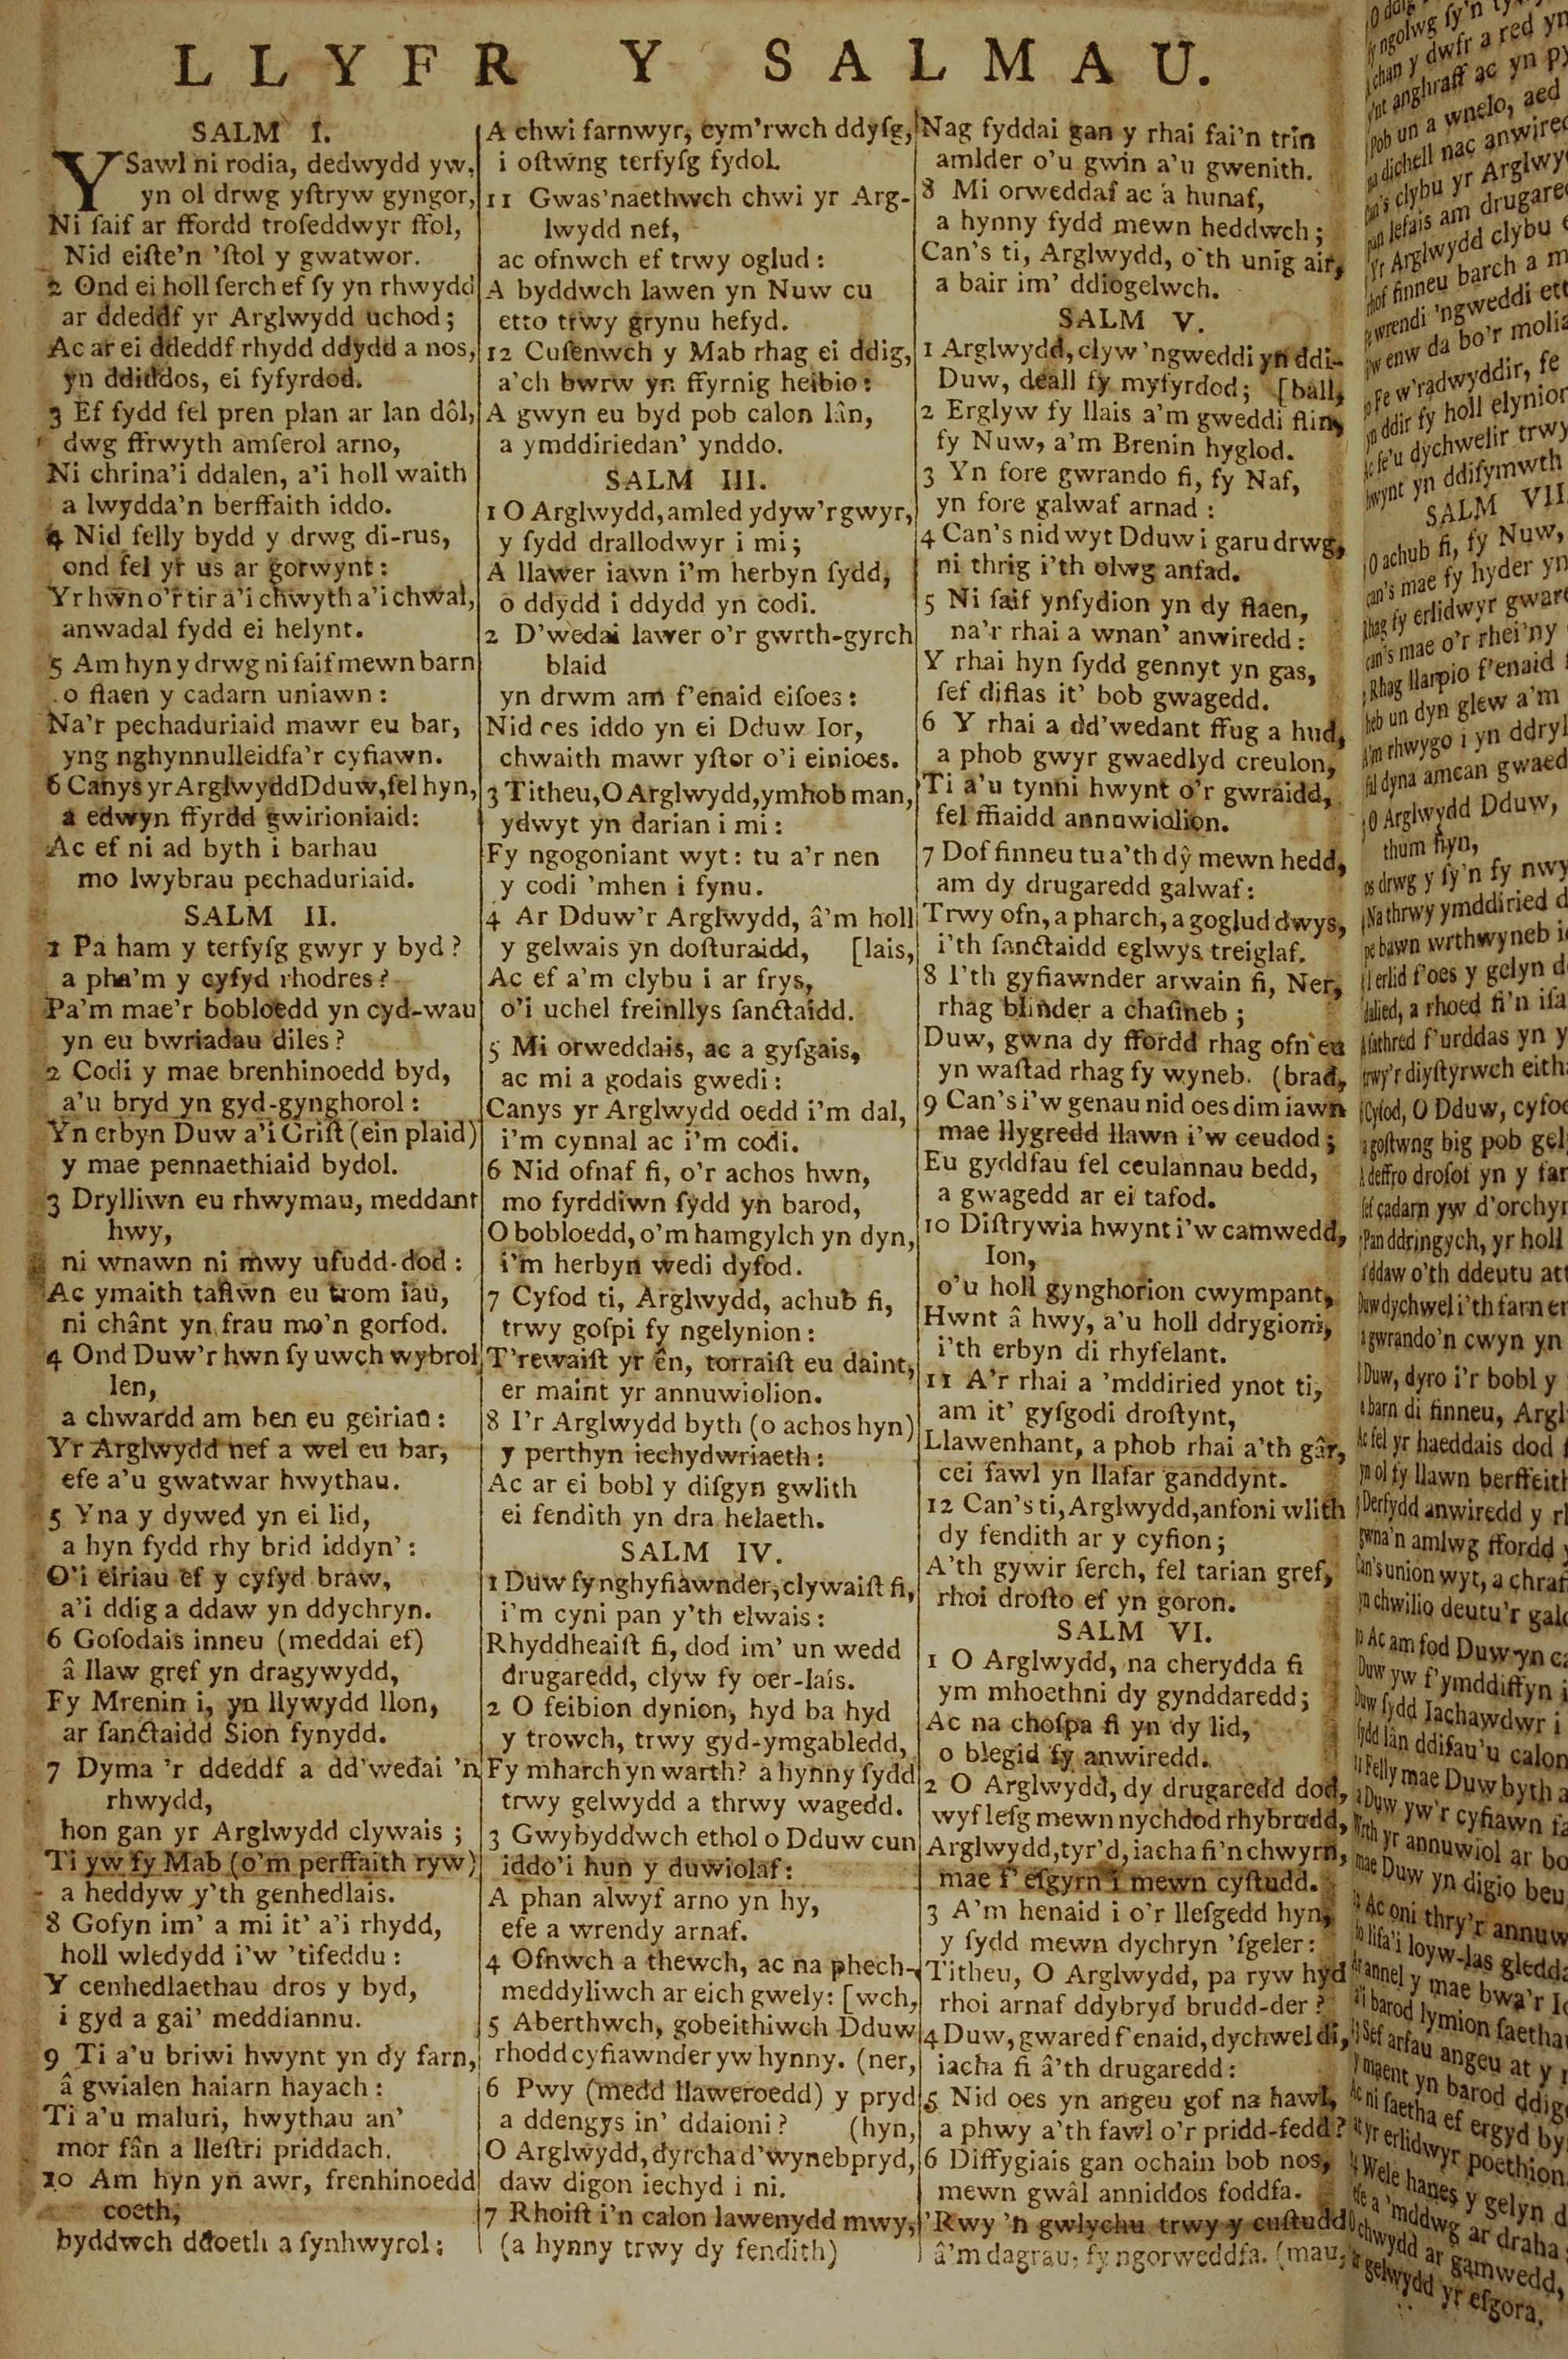 LLYFR Y SALMAU.
SALM I.
Y Sawl ni rodia, dedwydd yw,
yn ol drwg yſtryw gyngor,
Ni ſaif ar ffordd troſeddwyr ffol,
Nid eiſte'n 'ſtol y gwatwor.
2 Ond ei holl ſerch ef ſy yn rhwydd
ar ddeddf yr Arglwydd uchod;
Ac ar ei ddeddf rhydd ddydd a nos,
yn ddiddos, ei fyfyrdod.
3 Ef fydd fel pren plan ar lan dôl,
dwg ffrwyth amſerol arno,
Ni chrina'i ddalen, a'i holl waith
a lwydda'n berffaith iddo.
4 Nid felly bydd y drwg di-rus,
ond fel yr us ar gorwynt:
Yr hwn o'r tir a'i chwyth a'i chwal,
anwadal fydd ei helynt.
5 Am hyn y drwg ni ſaif mewn barn
o flaen y cadarn uniawn:
Na'r pechaduriaid mawr eu bar,
yng nghynnulleidfa'r cyfiawn.
6 Canys yr Arglwydd Dduw, fel hyn,
a edwyn ffyrdd gwirioniaid:
Ac ef ni ad byth i barhau
mo lwybrau pechaduriaid.
SALM II.
1 Pa ham y terfyſg gwyr y byd?
a pha'm y cyfyd rhodres?
Pa'm mae'r bobloedd yn cyd-wau
yn eu bwriadau diles?
2 Codi y mae brenhinoedd byd,
a'u bryd yn gyd-gynghorol:
Yn erbyn Duw a'i Griſt (ein plaid)
y mae pennaethiaid bydol.
3 Drylliwn eu rhwymau, meddant
hwy,
ni wnawn ni mwy ufudd-dod:
Ac ymaith taflwn eu trom iau,
ni chânt yn frau mo'n gorfod.
4 Ond Duw'r hwn ſy uwch wybrol
len,
a chwardd am ben eu geiriau:
Yr Arglwydd nef a wel eu bar,
efe a'u gwatwar hwythau.
5 Yna y dywed yn ei lid,
a hyn fydd rhy brid iddyn':
O'i eiriau ef y cyfyd braw,
a'i ddig a ddaw yn ddychryn.
6 Goſodais inneu (meddai ef)
â llaw gref yn dragywydd,
Fy Mrenin i, yn llywydd llon,
ar ſanctaidd Sion fynydd.
7 Dyma 'r ddeddf a dd'wedai 'n
rhwydd,
hon gan yr Arglwydd clywais;
Ti yw fy Mab (o'm perffaith ryw)
a heddyw y'th genhedlais.
8 Gofyn im' a mi it' a'i rhydd,
holl wledydd i'w 'tifeddu:
Y cenhedlaethau dros y byd,
i gyd a gai' meddiannu.
9 Ti a'u briwi hwynt yn dy farn,
â gwialen haiarn hayach:
Ti a'u maluri, hwythau an'
mor fân a lleſtri priddach.
10 Am hyn yn awr, frenhinoedd
coeth,
byddwch ddoeth a ſynhwyrol;
A chwi farnwyr, cym'rwch ddyſg,
i oſtwng terfyſg fydol.
11 Gwas'naethwch chwi yr Arg-
lwydd nef,
ac ofnwch ef trwy oglud:
A byddwch lawen yn Nuw cu
etto trwy grynu hefyd.
12 Cuſenwch y Mab rhag ei ddig,
a'ch bwrw yn ffyrnig heibio:
A gwyn eu byd pob calon lân,
a ymddiriedan' ynddo.
SALM III.
1 O Arglwydd, amled ydyw'r gwyr,
y ſydd drallodwyr i mi;
A llawer iawn i'm herbyn ſydd,
o ddydd i ddydd yn codi.
2 D'wedai lawer o'r gwrth-gyrch
blaid
yn drwm am f'enaid eiſoes:
Nid oes iddo yn ei Dduw Ior,
chwaith mawr yſtor o'i einioes.
3 Titheu, O Arglwydd, ymhob man,
ydwyt yn darian i mi:
Fy ngogoniant wyt: tu a'r nen
y codi 'mhen i fynu.
4 Ar Dduw'r Arglwydd, â'm holl
y gelwais yn doſturaidd, [lais,
Ac ef a'm clybu i ar frys,
o'i uchel freinllys ſanctaidd.
5 Mi orweddais, ac a gyſgais,
ac mi a godais gwedi:
Canys yr Arglwydd oedd i'm dal,
i'm cynnal ac i'm codi.
6 Nid ofnaf fi, o'r achos hwn,
mo fyrddiwn ſydd yn barod,
O bobloedd, o'm hamgylch yn dyn,
i'm herbyn wedi dyfod.
7 Cyfod ti, Arglwydd, achub fi,
trwy goſpi fy ngelynion:
T'rewaiſt yr ên, torraiſt eu daint,
er maint yr annuwiolion.
8 I'r Arglwydd byth (o achos hyn)
y perthyn iechydwriaeth:
Ac ar ei bobl y diſgyn gwlith
ei fendith yn dra helaeth.
SALM IV.
1 Duw fy nghyfiawnder, clywaiſt fi,
i'm cyni pan y'th elwais:
Rhyddheaiſt fi, dod im' un wedd
drugaredd, clyw fy oer-lais.
2 O feibion dynion, hyd ba hyd
y trowch, trwy gyd-ymgabledd,
Fy mharch yn warth? a hynny ſydd
trwy gelwydd a thrwy wagedd.
3 Gwybyddwch ethol o Dduw cun
iddo'i hun y duwiolaf:
A phan alwyf arno yn hy,
efe a wrendy arnaf.
4 Ofnwch a thewch, ac na phech-
meddyliwch ar eich gwely: [wch,
5 Aberthwch, gobeithiwch Dduw
rhodd cyfiawnder yw hynny. (ner,
6 Pwy (medd llaweroedd) y pryd
a ddengys in' ddaioni? (hyn,
O Arglwydd, dyrcha d'wynebpryd,
daw digon iechyd i ni.
7 Rhoiſt i'n calon lawenydd mwy,
(a hynny trwy dy fendith)
Nag fyddai gan y rhai fai'n trîn
amlder o'u gwin a'u gwenith.
8 Mi orweddaf ac a hunaf,
a hynny fydd mewn heddwch;
Can's ti, Arglwydd, o'th unig air,
a bair im' ddiogelwch.
SALM V.
1 Arglwydd, clyw 'ngweddi yn ddi-
Duw, deall fy myfyrdod; [ball,
2 Erglyw fy llais a'm gweddi flin,
fy Nuw, a'm Brenin hyglod.
3 Yn fore gwrando fi, fy Naf,
yn fore galwaf arnad:
4 Can's nid wyt Dduw i garu drwg,
ni thrig i'th olwg anfad.
5 Ni ſaif ynfydion yn dy flaen,
na'r rhai a wnan' anwiredd:
Y rhai hyn ſydd gennyt yn gas,
ſef diflas it' bob gwagedd.
6 Y rhai a dd'wedant ffug a hud,
a phob gwyr gwaedlyd creulon,
Ti a'u tynni hwynt o'r gwraidd,
fel ffiaidd annuwiolion.
7 Dof finneu tu a'th dŷ mewn hedd,
am dy drugaredd galwaf:
Trwy ofn, a pharch, a goglud dwys,
i'th ſanctaidd eglwys treiglaf.
8 I'th gyfiawnder arwain fi, Ner,
rhag blinder a chaſineb;
Duw, gwna dy ffordd rhag ofn eu
yn waſtad rhag fy wyneb. (brad,
9 Can's i'w genau nid oes dim iawn
mae llygredd llawn i'w ceudod;
Eu gyddfau fel ceulannau bedd,
a gwagedd ar ei tafod.
10 Diſtrywia hwynt i'w camwedd,
Ion,
o'u holl gynghorion cwympant,
Hwnt â hwy, a'u holl ddrygioni,
i'th erbyn di rhyfelant.
11 A'r rhai a 'mddiried ynot ti,
am it' gyſgodi droſtynt,
Llawenhant, a phob rhai a'th gâr,
cei fawl yn llafar ganddynt.
12 Can's ti, Arglwydd, anfoni wlith
dy fendith ar y cyfion;
A'th gywir ſerch, fel tarian gref,
rhoi droſto ef yn goron.
SALM VI.
1 O Arglwydd, na cherydda fi
ym mhoethni dy gynddaredd;
Ac na choſpa fi yn dy lid,
o blegid fy anwiredd.
2 O Arglwydd, dy drugaredd dod,
wyf leſg mewn nychdod rhybrudd,
Arglwydd, tyr'd, iacha fi'n chwyrn,
mae f' eſgyrn i mewn cyſtudd.
3 A'm henaid i o'r lleſgedd hyn,
y ſydd mewn dychryn 'ſgeler:
Titheu, O Arglwydd, pa ryw hyd
rhoi arnaf ddybryd brudd-der?
4 Duw, gwared f'enaid, dychwel di,
iacha fi â'th drugaredd:
5 Nid oes yn angeu gof na hawl,
a phwy a'th fawl o'r pridd-fedd?
6 Diffygiais gan ochain bob nos,
mewn gwâl anniddos foddfa.
'Rwy 'n gwlychu trwy y cuſtudd
â'm dagrau, fy ngorweddfa. (mau,
ngolwg ſy'n
chan y dwfr a red yn
anghraff ac yn
pob un a wnelo, aed
dichell nac
clybu yr Arglwydd
lefais am
Yr Arglwydd clybu
finneu barch a
wrendi 'ngweddi
enw da bo'r
Fe w'radwyddir, fe
ddir fy holl
fe'u dychwelir trwy
hwynt yn ddifymwth
SALM VII.
O achub fi, fy Nuw,
can's mae fy hyder yn
Rhag fy erlidwyr
can's mae o'r rhei'ny
Rhag llarpio f'enaid
heb un dyn glew a'm
A'm rhwygo i yn
fal dyna amcan
O Arglwydd Dduw,
thum hyn,
os drwg y ſy'n fy
Na thrwy ymddiried
pe bawn wrthwyneb
I erlid f'oes y gelyn
a rhoed fi'n
A ſathred f'urddas yn
trwy'r diyſtyrwch
Cyfod, O Dduw,
a goſtwng big pob
A deffro droſof yn y
ſef cadarn yw
Pan ddringych, yr holl
i'ddaw o'th ddeutu
Duw dychwel i'th farn
a gwrando'n cwyn yn
Duw, dyro i'r bobl y
a barn di finneu,
Ac fel yr haeddais dod
yn ol fy llawn
Derfydd anwiredd y
gwna'n amlwg ffordd
Can's union wyt, a
yn chwilio deutu'r
10 Ac am fod Duw yn
Duw yw f'ymddiffyn
Duw ſydd Iachawdwr i
ſydd lân ddifau'u calon
11 Felly mae Duw byth
a Duw yw'r cyfiawn
Wrth yr annuwiol ar
mae Duw yn digio
12 Ac oni thry'r
lifa'i loyw-las
annel y mae bwa'r
a'i barod lymion
13 Sef arfau angeu at y
y maent yn barod
Ac ni ſaetha ef ergyd
at yr erlidwyr poethion.
14 Wele hanes y gelyn
efe a 'mddwg ar
chwydd ar gamwedd,
gelwydd yr eſgora.